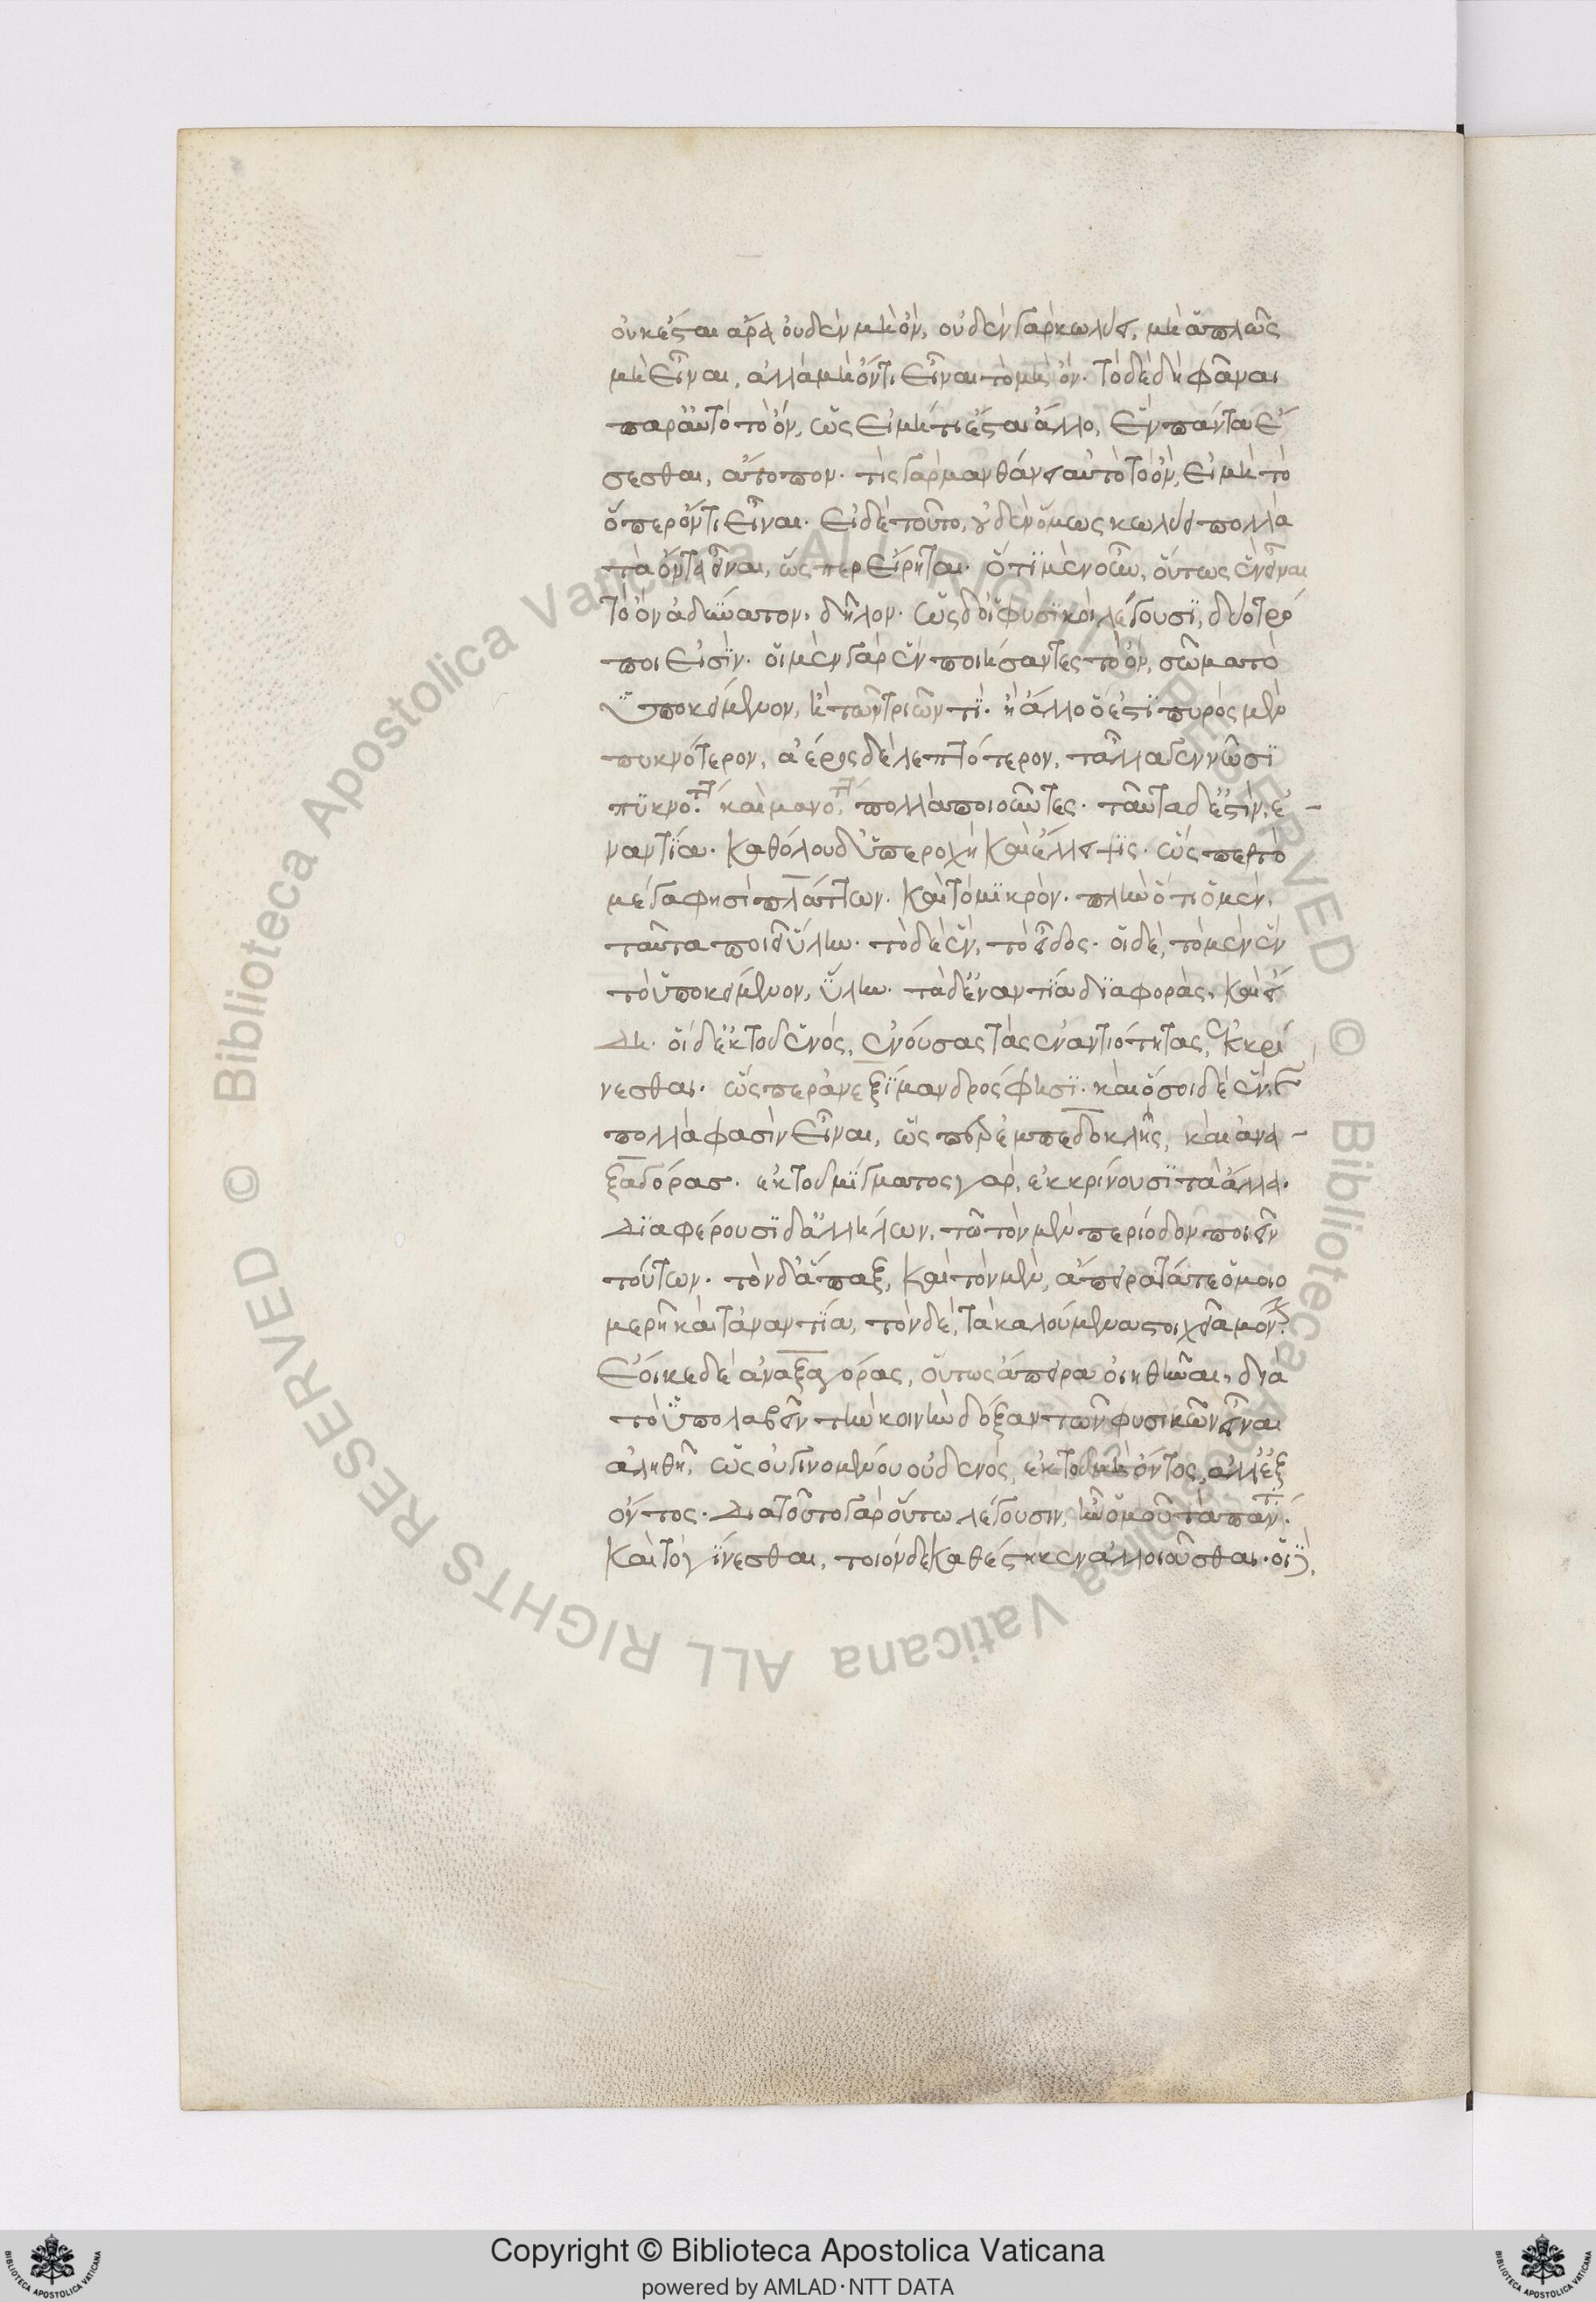 οὐκ ἔσται ἄρα οὐδὲν μὴ ὄν, οὐδὲν γὰρ κωλύει, μὴ ἁπλῶς
μὴ εἶναι, ἀλλὰ μὴ ὄν τι εἶναι τὸ μὴ ὄν. τὸ δὲ δὴ φάναι
παρ' αὐτὸ τὸ ὄν, ὡς εἰ μή τι ἔσται ἄλλο, ἓν πάντα ἔ
σεσθαι, ἄτοπον. τίς γὰρ μανθάνει αὐτὸ τὸ ὄν, εἰ μὴ τὸ
ὅπερ ὄν τι εἶναι. εἰ δὲ τοῦτο, οὐδὲν ὅμως κωλύει πολλὰ
τὰ ὄντα εἶναι, ὥσπερ εἴρηται. ὅτι μὲν οὖν, οὕτως ἓν εἶναι
τὸ ὂν ἀδύνατον, δῆλον. ὡς δ' οἱ φυσικοὶ λέγουσι, δύο τρό
ποι εἰσίν. οἱ μὲν γὰρ ἓν ποιήσαντες τὸ ὄν, σῶμα τὸ
ὑποκείμενον, ἢ τῶν τριῶν τι. ἢ ἄλλο ὅ ἐστι πυρὸς μὲν
πυκνότερον, ἀέρος δὲ λεπτότερον, τἆλλα γεννῶσι
πυκνότητι καὶ μανότητι πολλὰ ποιοῦντες. ταῦτα δ' ἐστὶν, ἐ-
ναντία. καθόλου δ' ὑπεροχὴ καὶ ἔλλειψις. ὥσπερ τὸ
μέγα φησὶ πλάτων. καὶ τὸ μικρόν. πλὴν ὅτι ὁ μὲν,
ταῦτα ποιεῖ ὕλην. τὸ δὲ ἕν, τὸ εἶδος. οἱ δὲ, τὸ μὲν ἓν
τὸ ὑποκείμενον, ὕλην. τὰ δ' ἐναντία διαφορὰς, καὶ εἴ
δη. οἱ δ' ἐκ τοῦ ἑνός, ἐνούσας τὰς ἐναντιότητας, ἐκκρί
νεσθαι. ὥσπερ ἀνεξίμανδρός φησι. καὶ ὅσοι δὲ ἓν καὶ
πολλὰ φασὶν εἶναι, ὥσπερ ἐμπεδοκλῆς, καὶ ἀνα-
ξαγόρας. ἐκ τοῦ μίγματος γὰρ, ἐκκρίνουσι τὰ ἄλλα.
διαφέρουσι δ' ἀλλήλων, τῷ τὸν μὲν περίοδον ποιεῖν
τούτων. τὸν δ' ἅπαξ, καὶ τὸν μὲν, ἄπειρα τά τε ὁμοιο
μερῆ καὶ τἀναντία, τὸν δὲ, τὰ καλούμενα στοιχεῖα μόνον.
ἔοικε δὲ ἀναξαγόρας, οὕτως ἄπειρα οἰηθῆναι, διὰ
τὸ ὑπολαβεῖν τὴν κοινὴν δόξαν τῶν φυσικῶν εἶναι
ἀληθῆ, ὡς οὐ γινομένου οὐδενὸς, ἐκ τοῦ μὴ ὄντος, ἀλλ' ἐξ
ὄντος. διὰ τοῦτο γὰρ οὕτω λέγουσιν, ἦν ὁμοῦ τὰ πάντα.
καὶ τὸ γίνεσθαι, τοιόνδε καθέστηκεν ἀλλοιοῦσθαι. οἱ δὲ,